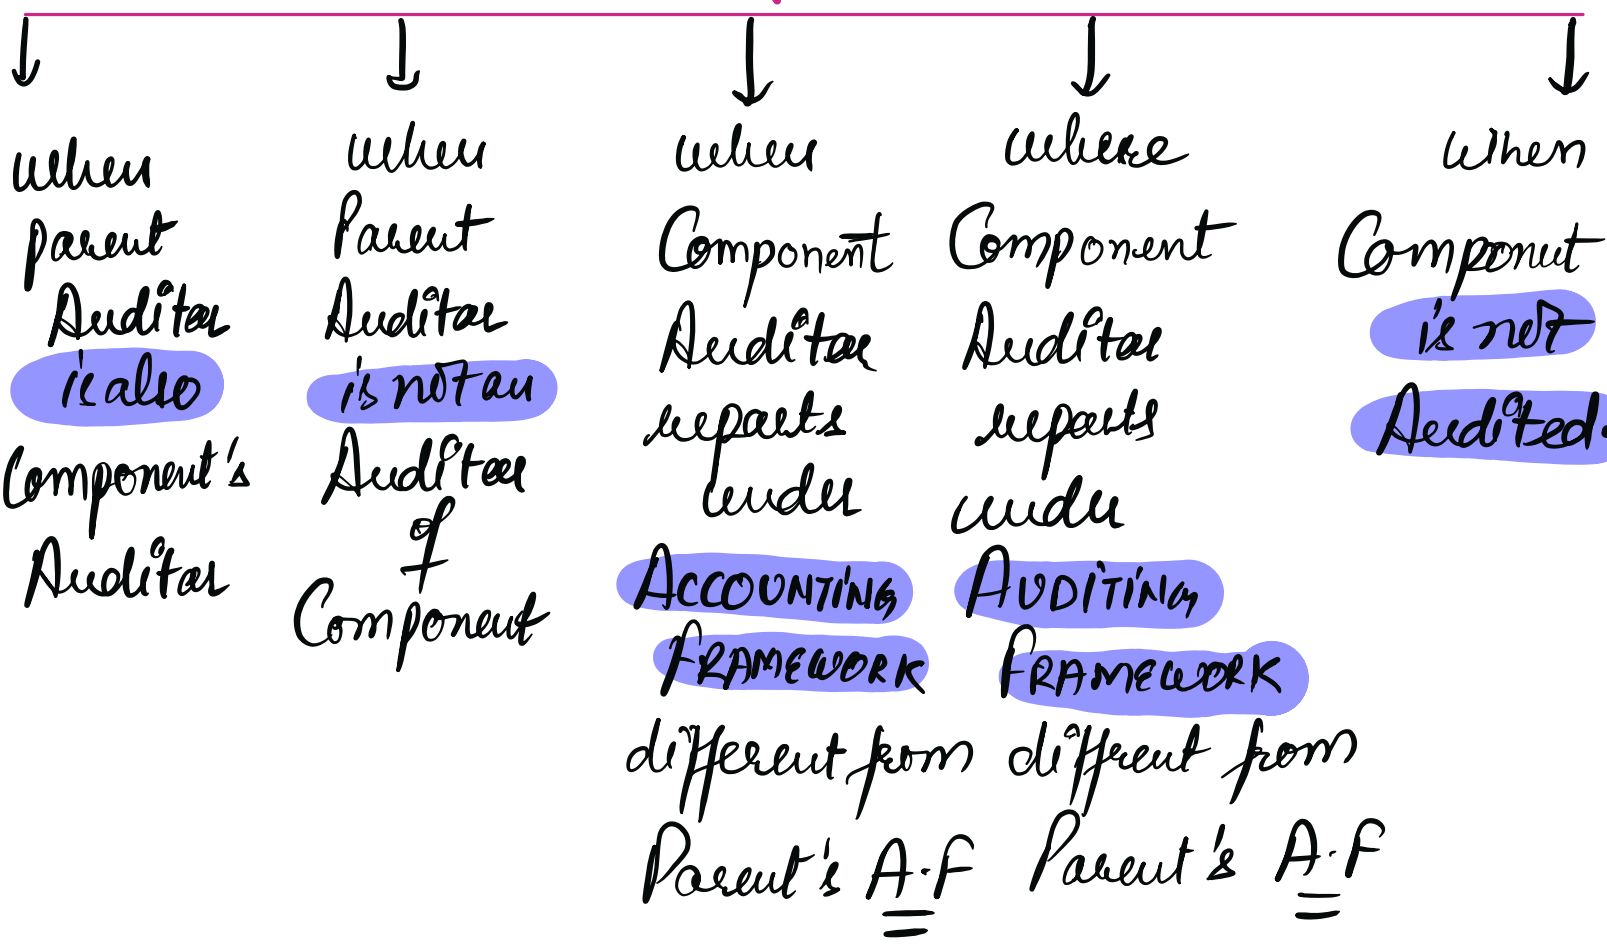 when
parent
Auditor
is also
Component's
Auditor
when
Parent
Auditor
is not an
Auditor
of
Component
when
Component
Auditor
reports
under
ACCOUNTING
FRAMEWORK
different from
Parent's A.F
where
Component
Auditor
reports
under
AUDITING
FRAMEWORK
different from
Parent's A.F
when
Component
is not
Audited.